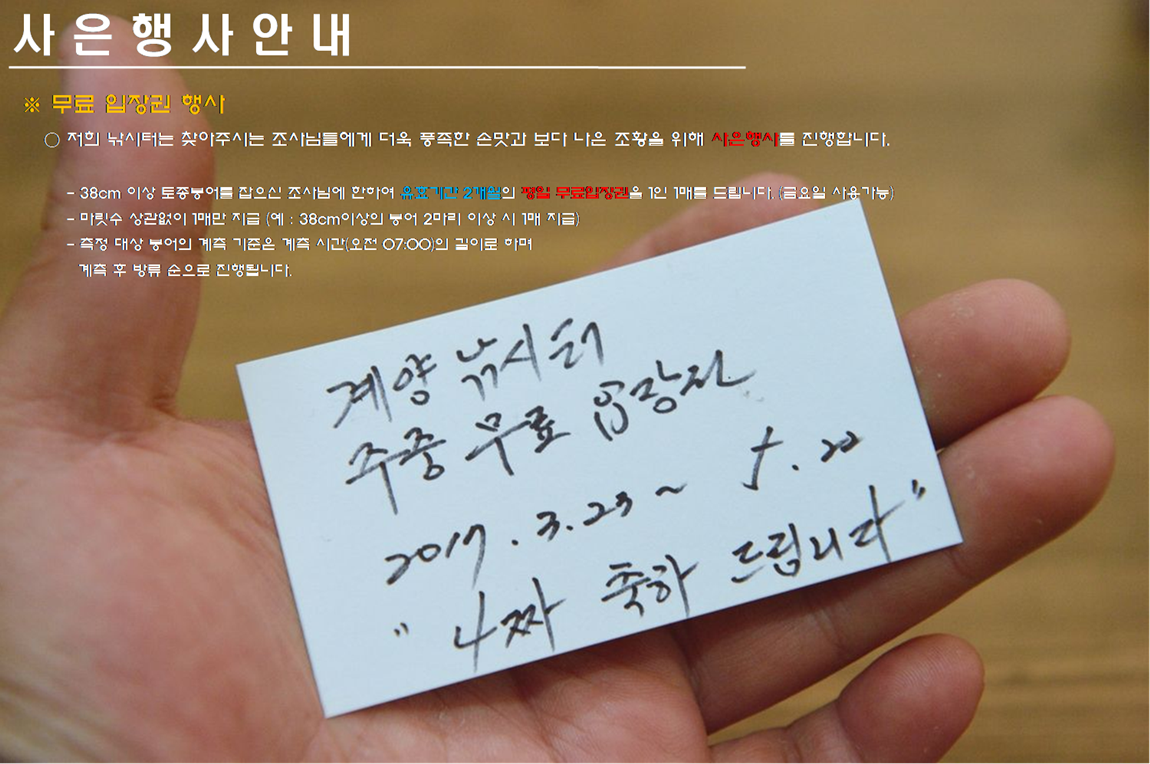 사은행사안내
※ 무료 입장권 행사
○ 저희 낚시터는 찾아주시는 조사님들에게 더욱 풍족한 손맛과 보다 나은 조황을 위해 사은행사를 진행합니다.
- 38cm 이상 토종붕어를 잡으신 조사님에 한하여 유효기간 2개월의 평일 무료입장권을 1인 1매를 드립니다. (금요일 사용가능)
- 마릿수 상관없이 1매만 지급 (예 : 38cm이상의 붕어 2마리 이상 시 1매 지급)
- 측정 대상 붕어의 계측 기준은 계측 시간(오전 07:00)의 길이로 하며
계측 후 방류 순으로 진행됩니다.
계양 낚시터
주중 무료 입장자
2017. 3. 23 ~ 5. 20
" 4짜 축하 드립니다 "